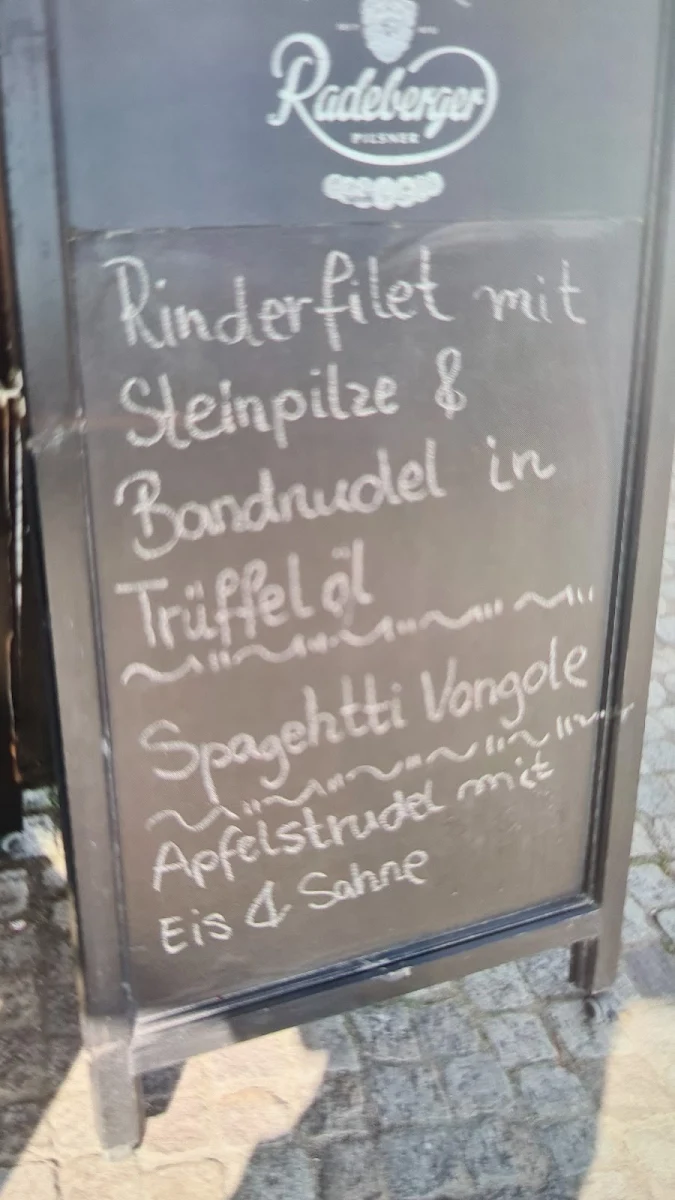 Radeberger
PILSNER
Rinderfilet mit
Steinpilze &
Bandnudel in
Trüffelöl
Spagehtti Vongole
Apfelstrudel mit
Eis & Sahne